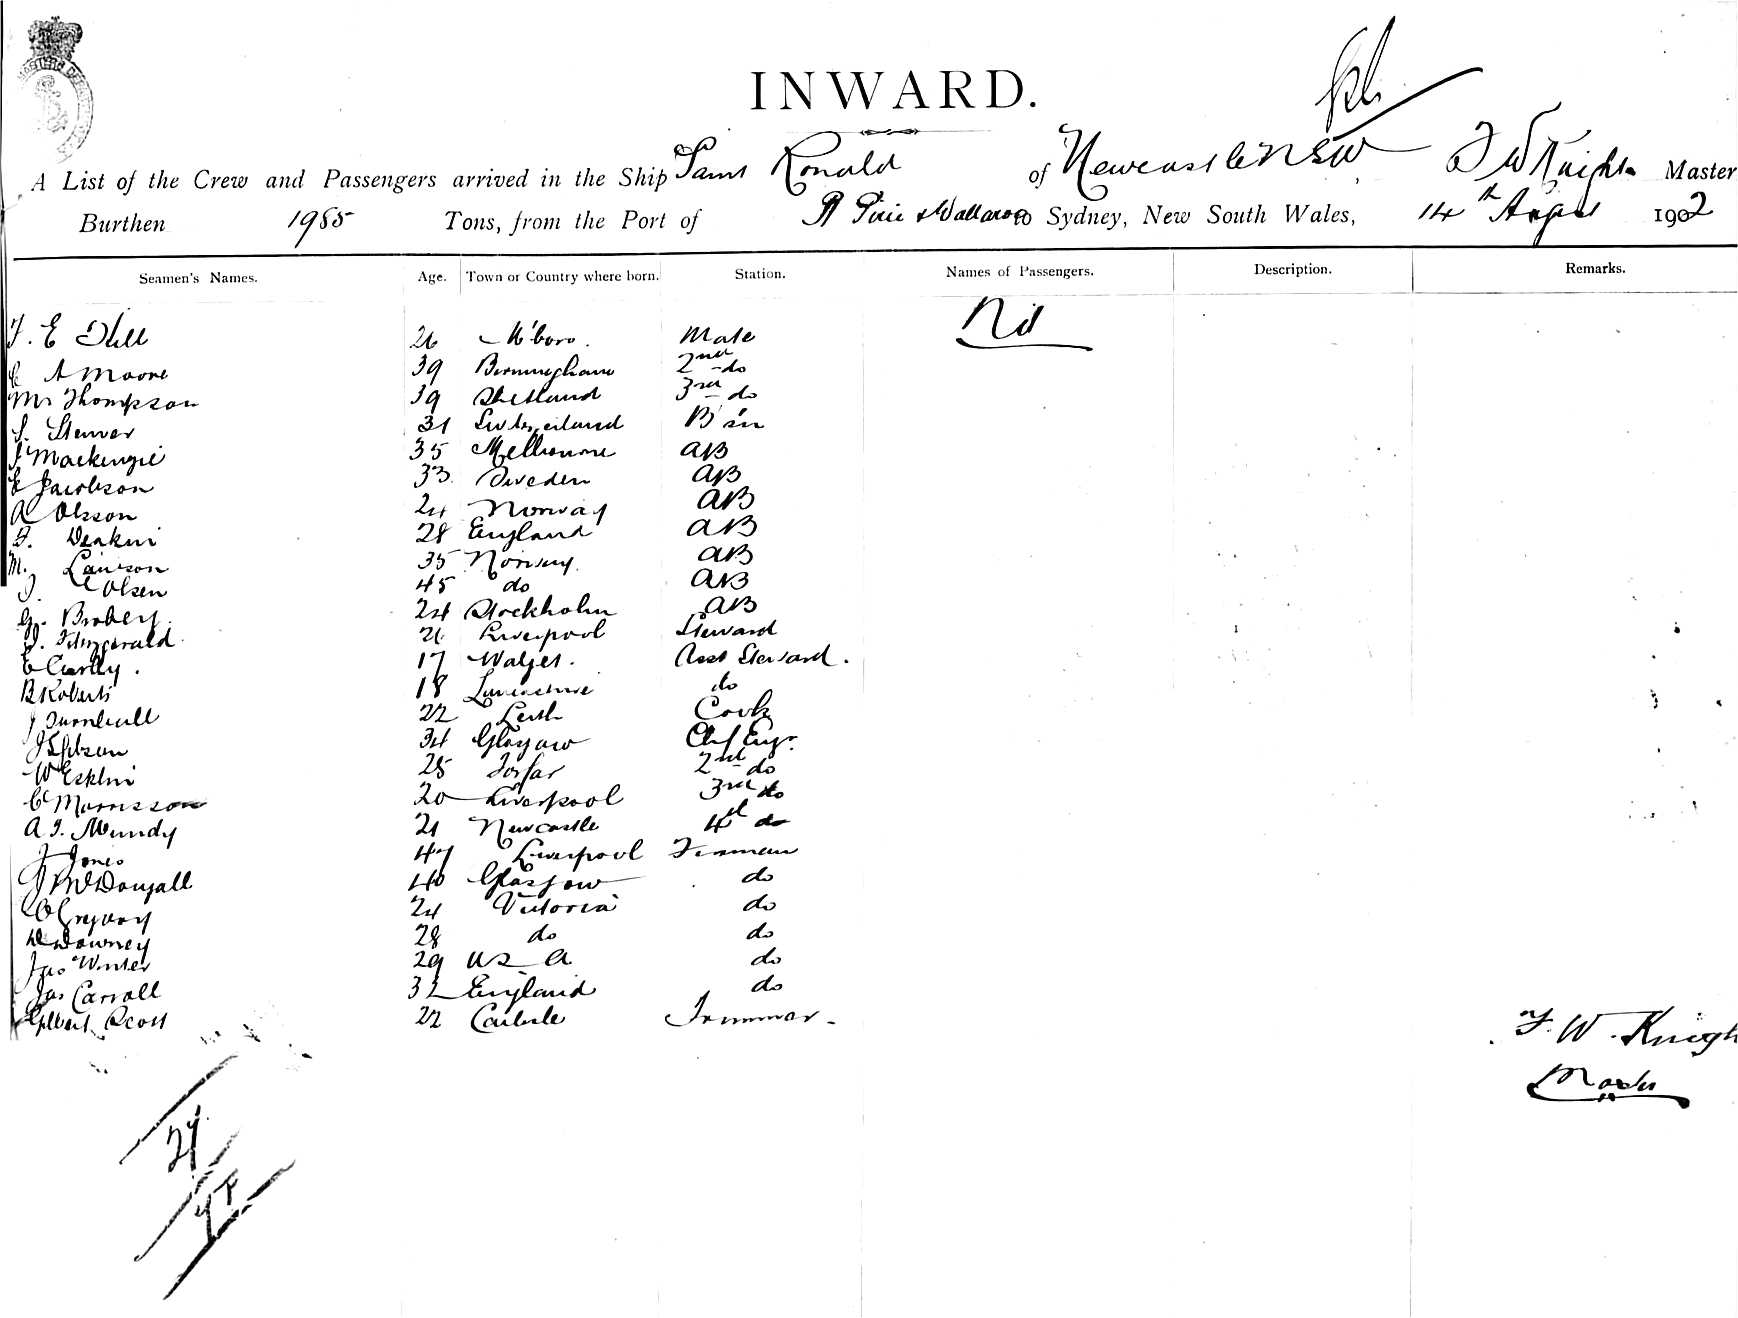 INWARD.
A List of the Crew and Passengers arrived in the Ship Saint Ronald of Newcastle NSW F W Knight Master
Burthen 1985 Tons, from the Port of Pt Pirie & Wallaroo to Sydney, New South Wales, 14th August 1902
Seamen's Names. Age. Town or Country where born. Station. Names of Passengers. Description. Remarks.
Nil
F. E 26 M'boro. Mate
A Moore 39 Birmingham 2nd do
Thompson 39 Shetland 3rd do
31 Switzerland
J Mackenzie 35 Melbourne AB
Jacobson 33 Sweden AB
A Olsson 24 Norway AB
Deakin 28 England AB
M. 35 Norway AB
Olsen 45 do AB
G. Broberg 24 Stockholm AB
J. Fitzgerald 26 Liverpool Steward
17 Asst Steward.
B Roberts 18 Lancashire do
J Turnbull 22 Leith Cook
J 34 Glasgow Chf Engr.
W 25 Forfar 2nd do
C Morrisson 20 Liverpool 3rd do
A J. Mundy 21 Newcastle 4th do
J Jones 47 Liverpool Fireman
J McDougall 40 Glasgow do
Gregory 24 Victoria do
Downey 28 do do
Jno Winter 29 USA do
Jas Carroll 32 England do
Gilbert Scott 22 Carlisle Trimmer
F. W. Knigh
Master
27